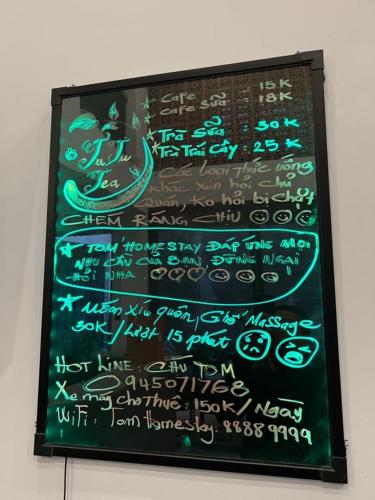 Tu Tu
Tea
Cafe : 15K
Cafe Sữa : 18K
Trà Sữa : 30K
Trà Trái Cây : 25K
Các loại thức uống
khác xin hỏi chủ
quán, ko hỏi bị chặt
CHÉM RÁNG CHỊU
TOM HOMESTAY ĐÁP ỨNG MỌI
NHU CẦU CỦA BẠN, ĐỪNG NGẠI
HỎI NHA
Mém xíu quên, Ghế Massage
30K / Lượt 15 phút
HOT LINE : CHÚ TOM
0945071768
Xe máy cho thuê : 150K / Ngày
WiFi : Tom Homestay : 88889999